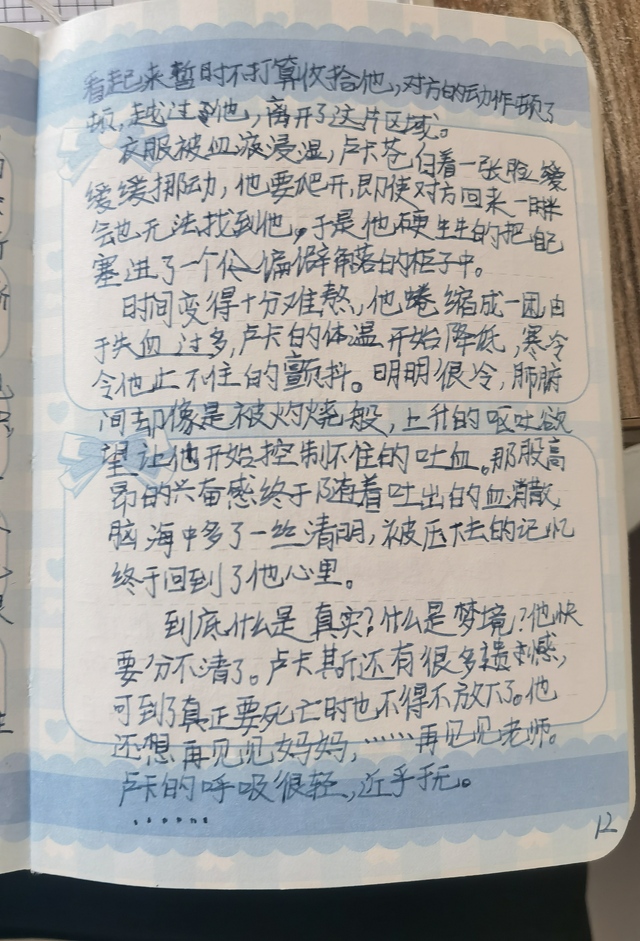 看起来暂时不打算收拾他,对方的动作顿了
顿,越过了他,离开了这片区域。
衣服被血液浸湿,卢卡苍白着一张脸缓
缓缓挪动,他要爬开,即使对方回来一时半
会也无法找到他。于是他硬生生的把自己
塞进了一个偏僻角落的柜子中。
时间变得十分难熬,他蜷缩成一团由
于失血过多,卢卡的体温开始降低,寒冷
令他止不住的颤抖。明明很冷,肺腑
间却像是被灼烧般,上升的呕吐欲
望让他开始控制不住的吐血。那股高
昂的兴奋感终于随着吐出的血消散,
脑海中多了一丝清明,被压下去的记忆
终于回到了他心里。
到底什么是真实?什么是梦境?他快
要分不清了。卢卡斯还有很多遗憾,
可到了真正要死亡时也不得不放下了。他
还想再见见妈妈,……再见见老师。
卢卡的呼吸很轻,近乎于无。
.......
12